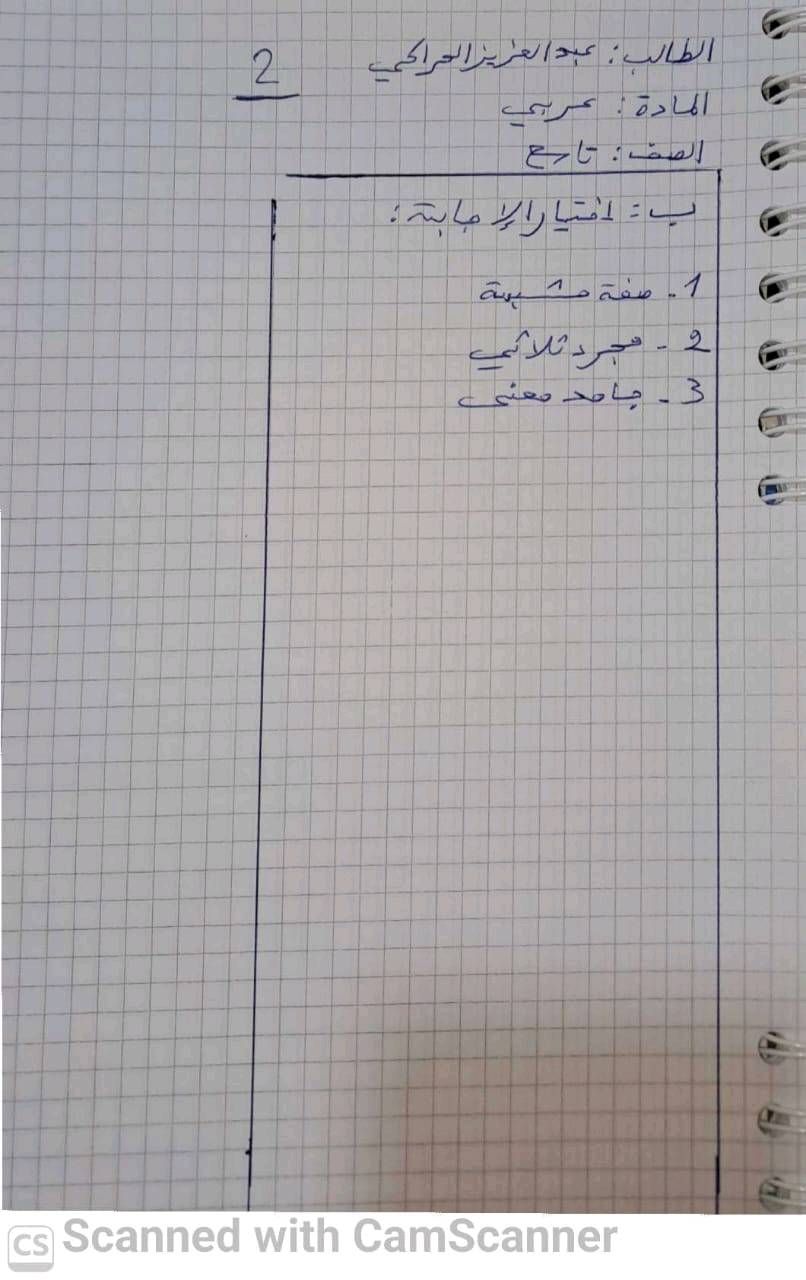 2
الطالب: عبد العزيز الحراكي
المادة: عربي
الصف: تاسع
ب: اختيار الإجابة:
1- صفة مشبهة
2- مجرد ثلاثي
3- جامد معنى
CS Scanned with CamScanner